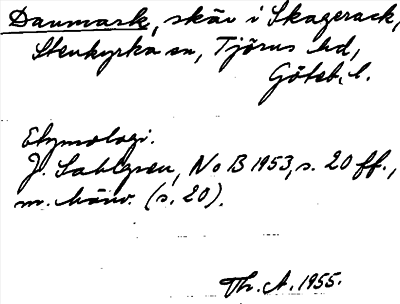 Danmark, skär i Skagerack,
Stenkyrka sn, Tjörns hd,
Göteb. l.
Etymologi.
J. Sahlgren, NoB 1953, s. 20 ff.,
m. hänv. (s. 20).
Th. A. 1955.